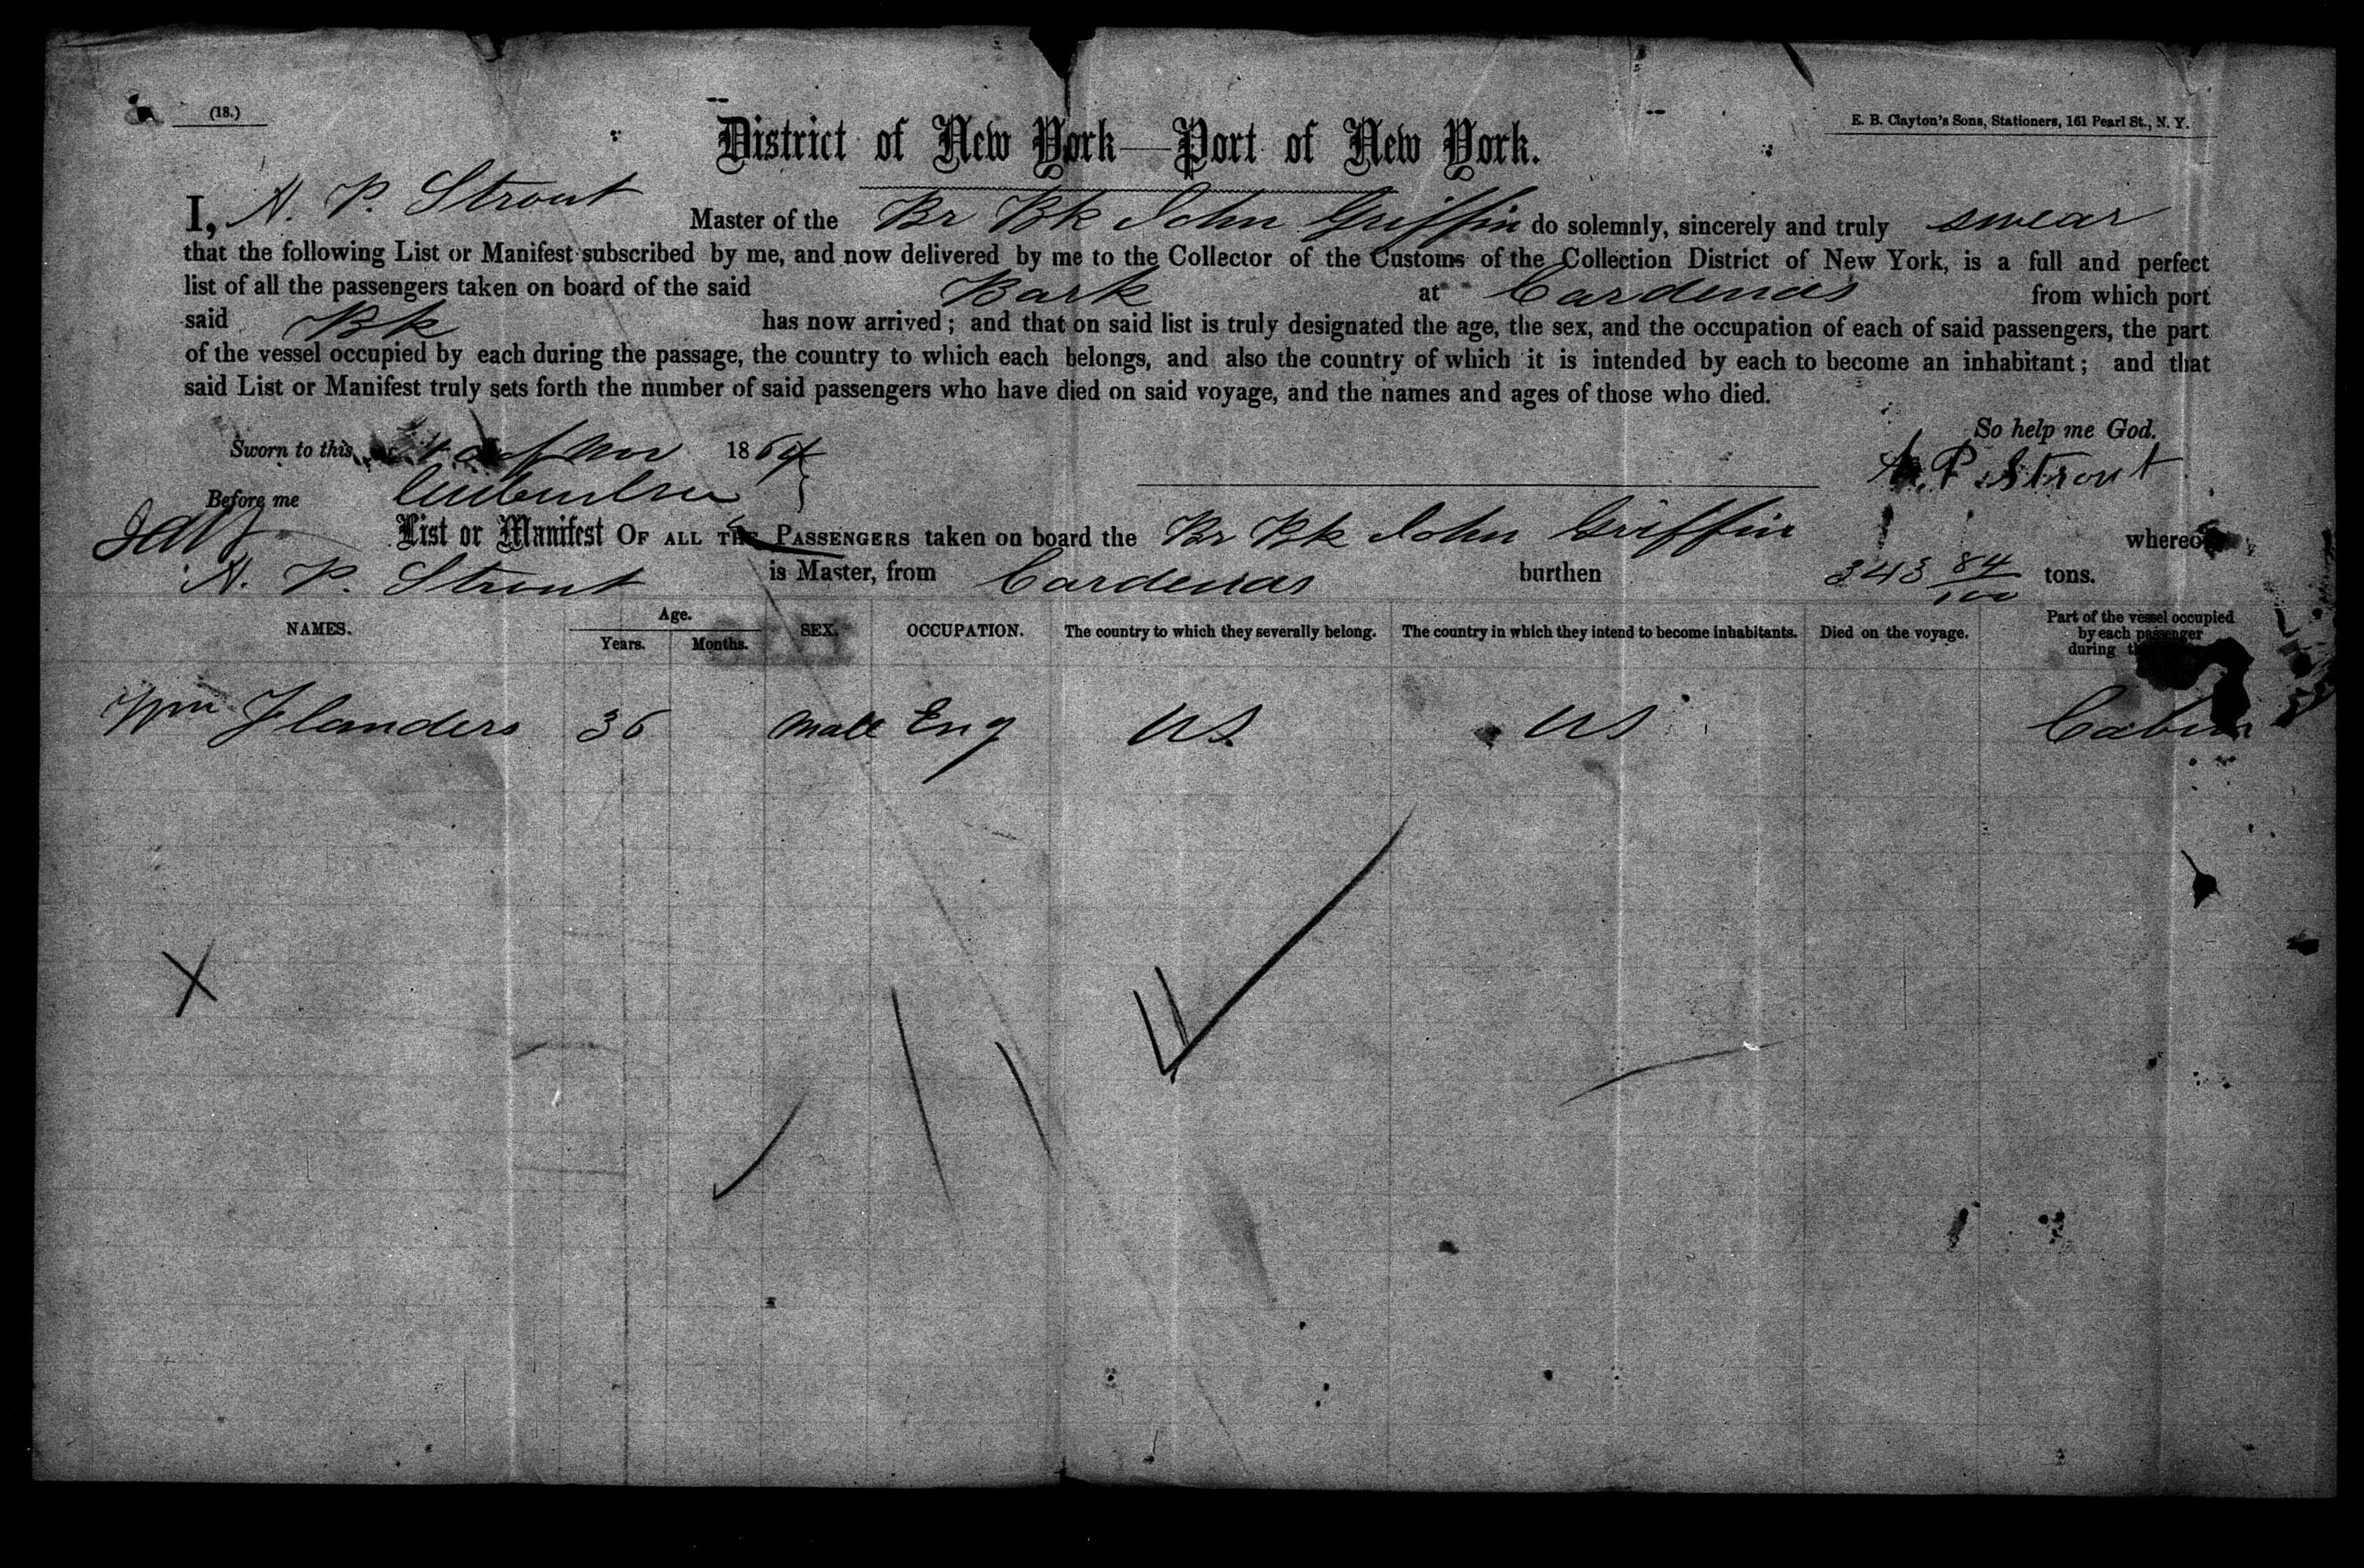 (18.)
E. B. Clayton's Sons, Stationers, 161 Pearl St., N. Y.
District of New York—Port of New York.
I, A. P. Strout Master of the Br Bk John Griffin do solemnly, sincerely and truly swear
that the following List or Manifest subscribed by me, and now delivered by me to the Collector of the Customs of the Collection District of New York, is a full and perfect
list of all the passengers taken on board of the said Bark at Cardenas from which port
said Bk has now arrived; and that on said list is truly designated the age, the sex, and the occupation of each of said passengers, the part
of the vessel occupied by each during the passage, the country to which each belongs, and also the country of which it is intended by each to become an inhabitant; and that
said List or Manifest truly sets forth the number of said passengers who have died on said voyage, and the names and ages of those who died.
So help me God.
Sworn to this Nov 1864
A. P. Strout
Before me
List or Manifest OF ALL THE PASSENGERS taken on board the Br Bk John Griffin whereof
A. P. Strout is Master, from Cardenas burthen 343 84/100 tons.
NAMES. Age. Years. Months. SEX. OCCUPATION. The country to which they severally belong. The country in which they intend to become inhabitants. Died on the voyage. Part of the vessel occupied by each passenger during
Wm Flanders 36 Male Eng US US Cabin